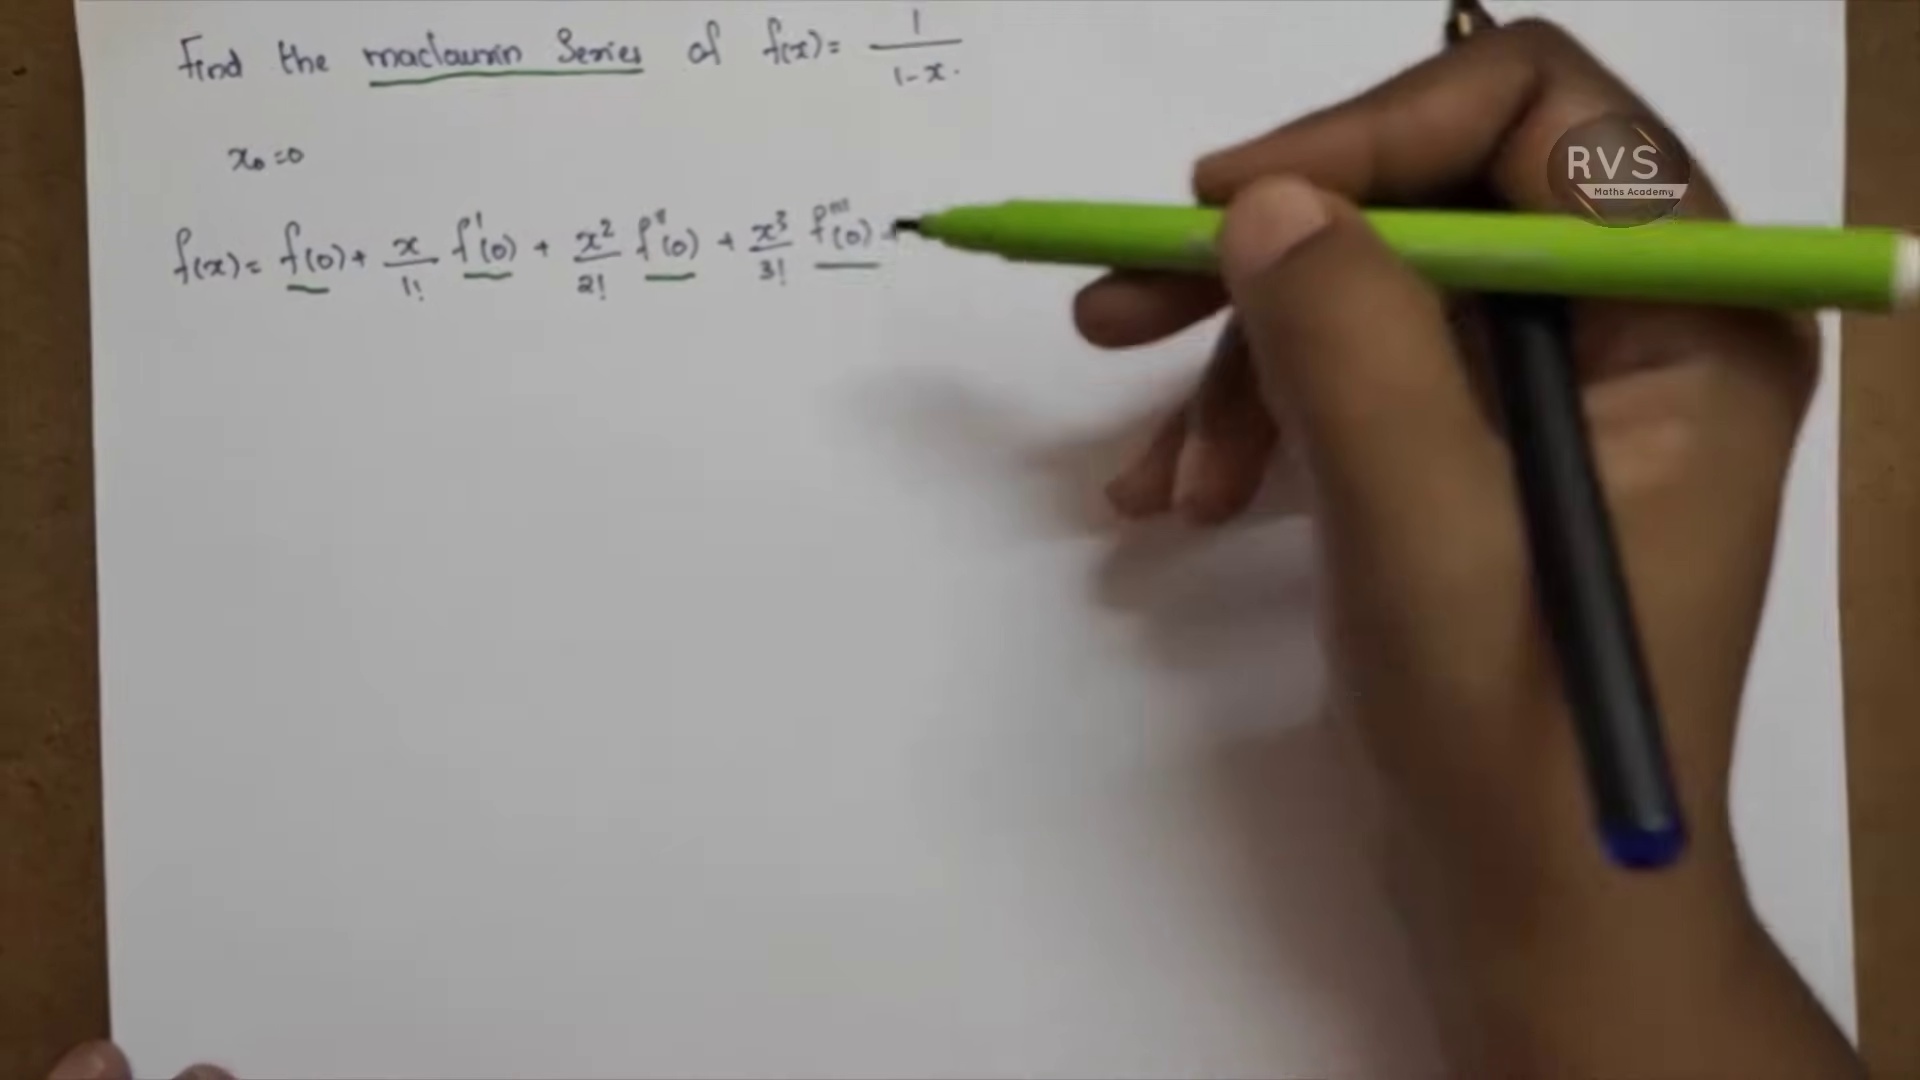 Find the maclaurin Series of f(x) = 1/1-x.
x₀=0
f(x) = f(0) + x/1! f'(0) + x²/2! f''(0) + x³/3! f'''(0) +
RVS
Maths Academy